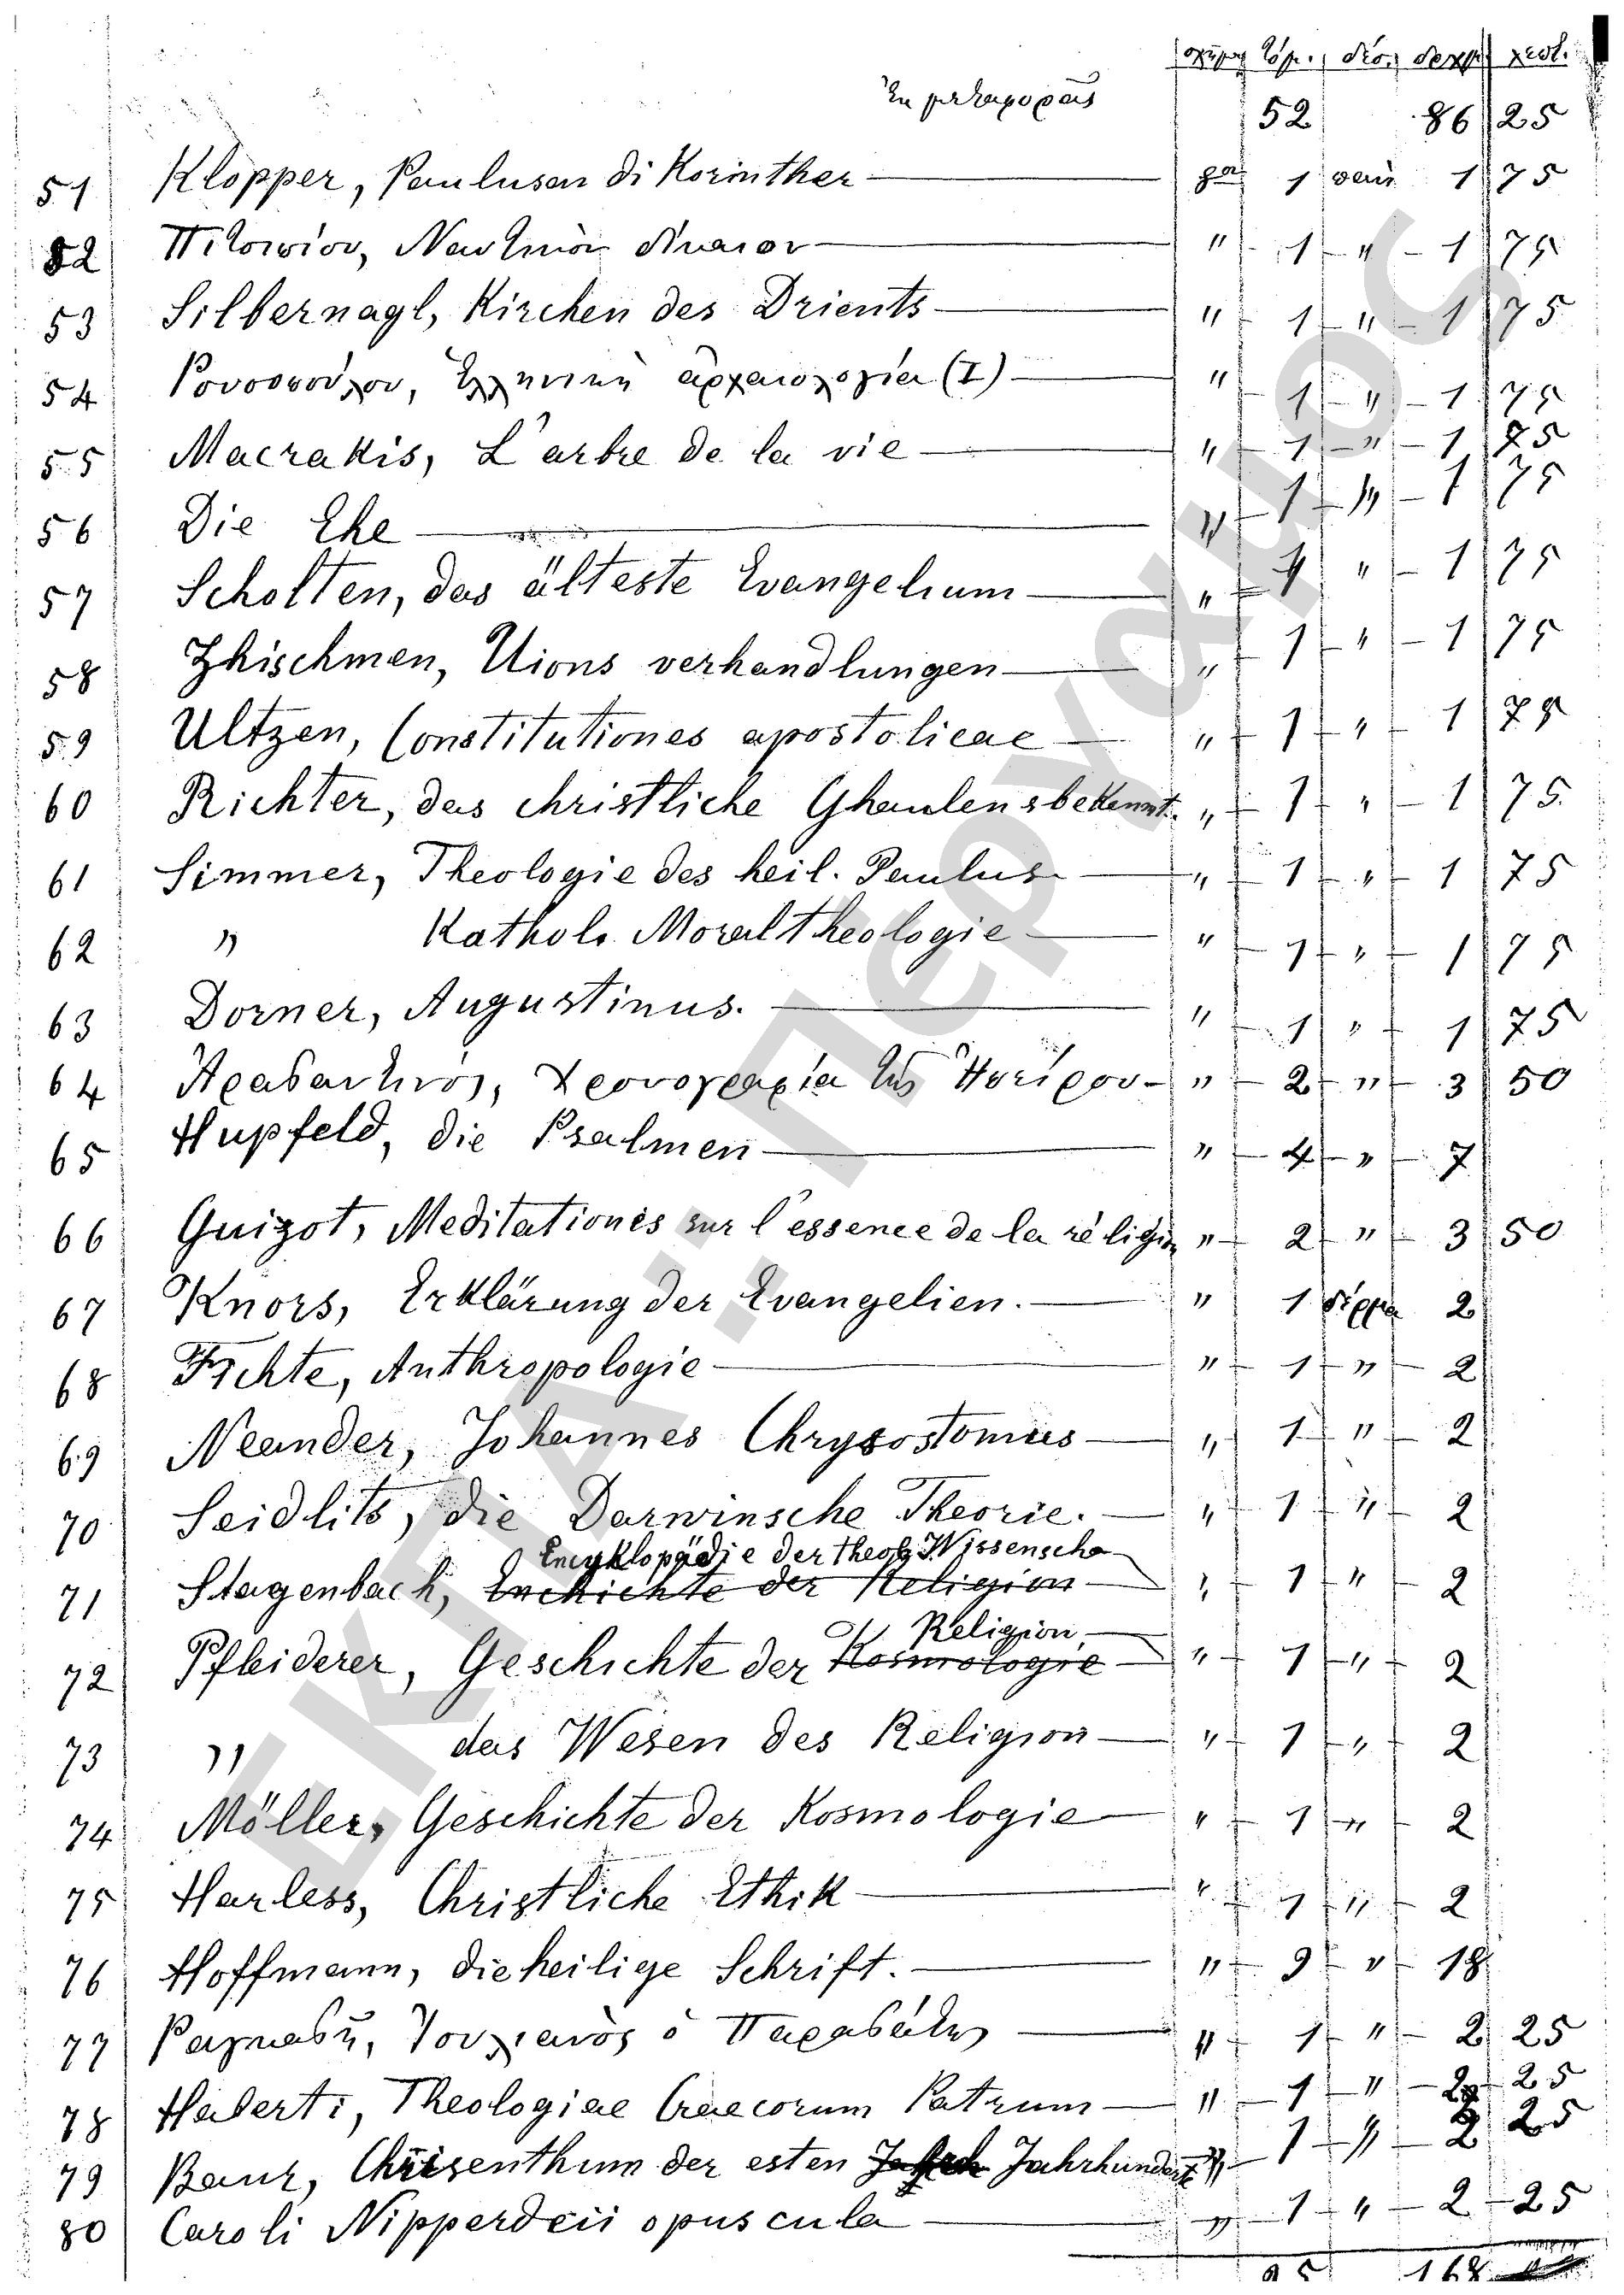 σχῆμα τόμ. δέσ. δραχμ λεπτ.
Ἐκ μεταφορᾶς 52 86 25
51 Klöpper, Paulusan di Korinther 8ον 1 παν. 1 75
52 Πιτσιπίου, Ναυτικὸν δίκαιον " 1 " 1 75
53 Silbernagl, Kirchen des Drients " 1 " 1 75
54 Ρουσοπούλου, Ἑλληνικὴ ἀρχαιολογία (I) " 1 " 1 75
55 Macrakis, L'arbre de la vie " 1 " 1 75
56 Die Ehe " 1 " 1 75
57 Scholten, das älteste Evangelium " 1 " 1 75
58 Zhischmen, Uions verhandlungen " 1 " 1 75
59 Ultzen, Constitutiones apostolicae " 1 " 1 75
60 Richter, das christliche Ghaulensbekennt. " 1 " 1 75
61 Simmer, Theologie des heil. Paulus " 1 " 1 75
62 " Kathol. Moraltheologie " 1 " 1 75
63 Dorner, Augustinus. " 1 " 1 75
64 Ἀραβαντινός, Χρονογραφία τῆς Ἠπείρου " 2 " 3 50
65 Hupfeld, die Psalmen " 4 " 7
66 Guizot, Meditationes sur l'essence de la réligion " 2 " 3 50
67 Knors, Erklärung der Evangelien. " 1 δέρμα 2
68 Fichte, Anthropologie " 1 " 2
69 Neander, Johannes Chrysostomus " 1 " 2
70 Seidlits, die Darwinsche Theorie. " 1 " 2
Encyklopädie der theol. Wissenscha
71 Stagenbach, Enchichte der Religion " 1 " 2
Religion
72 Pfleiderer, Geschichte der Kosmologie " 1 " 2
73 " das Wesen des Religion " 1 " 2
74 Möller, Geschichte der Kosmologie " 1 " 2
75 Harless, Christliche Ethik " 1 " 2
76 Hoffmann, die heilige Schrift. " 9 " 18
77 Ραγκαβῆ, Ἰουλιανὸς ὁ Παραβάτης " 1 " 2 25
78 Haberti, Theologiae Graecorum Patrum " 1 " 2 25
79 Baur, Chrisenthum der esten Jahrhundert " 1 " 2 25
80 Caroli Nipperdeii opuscula " 1 " 2 25
95 168
ΕΚΠΑ:: Πέργαμος